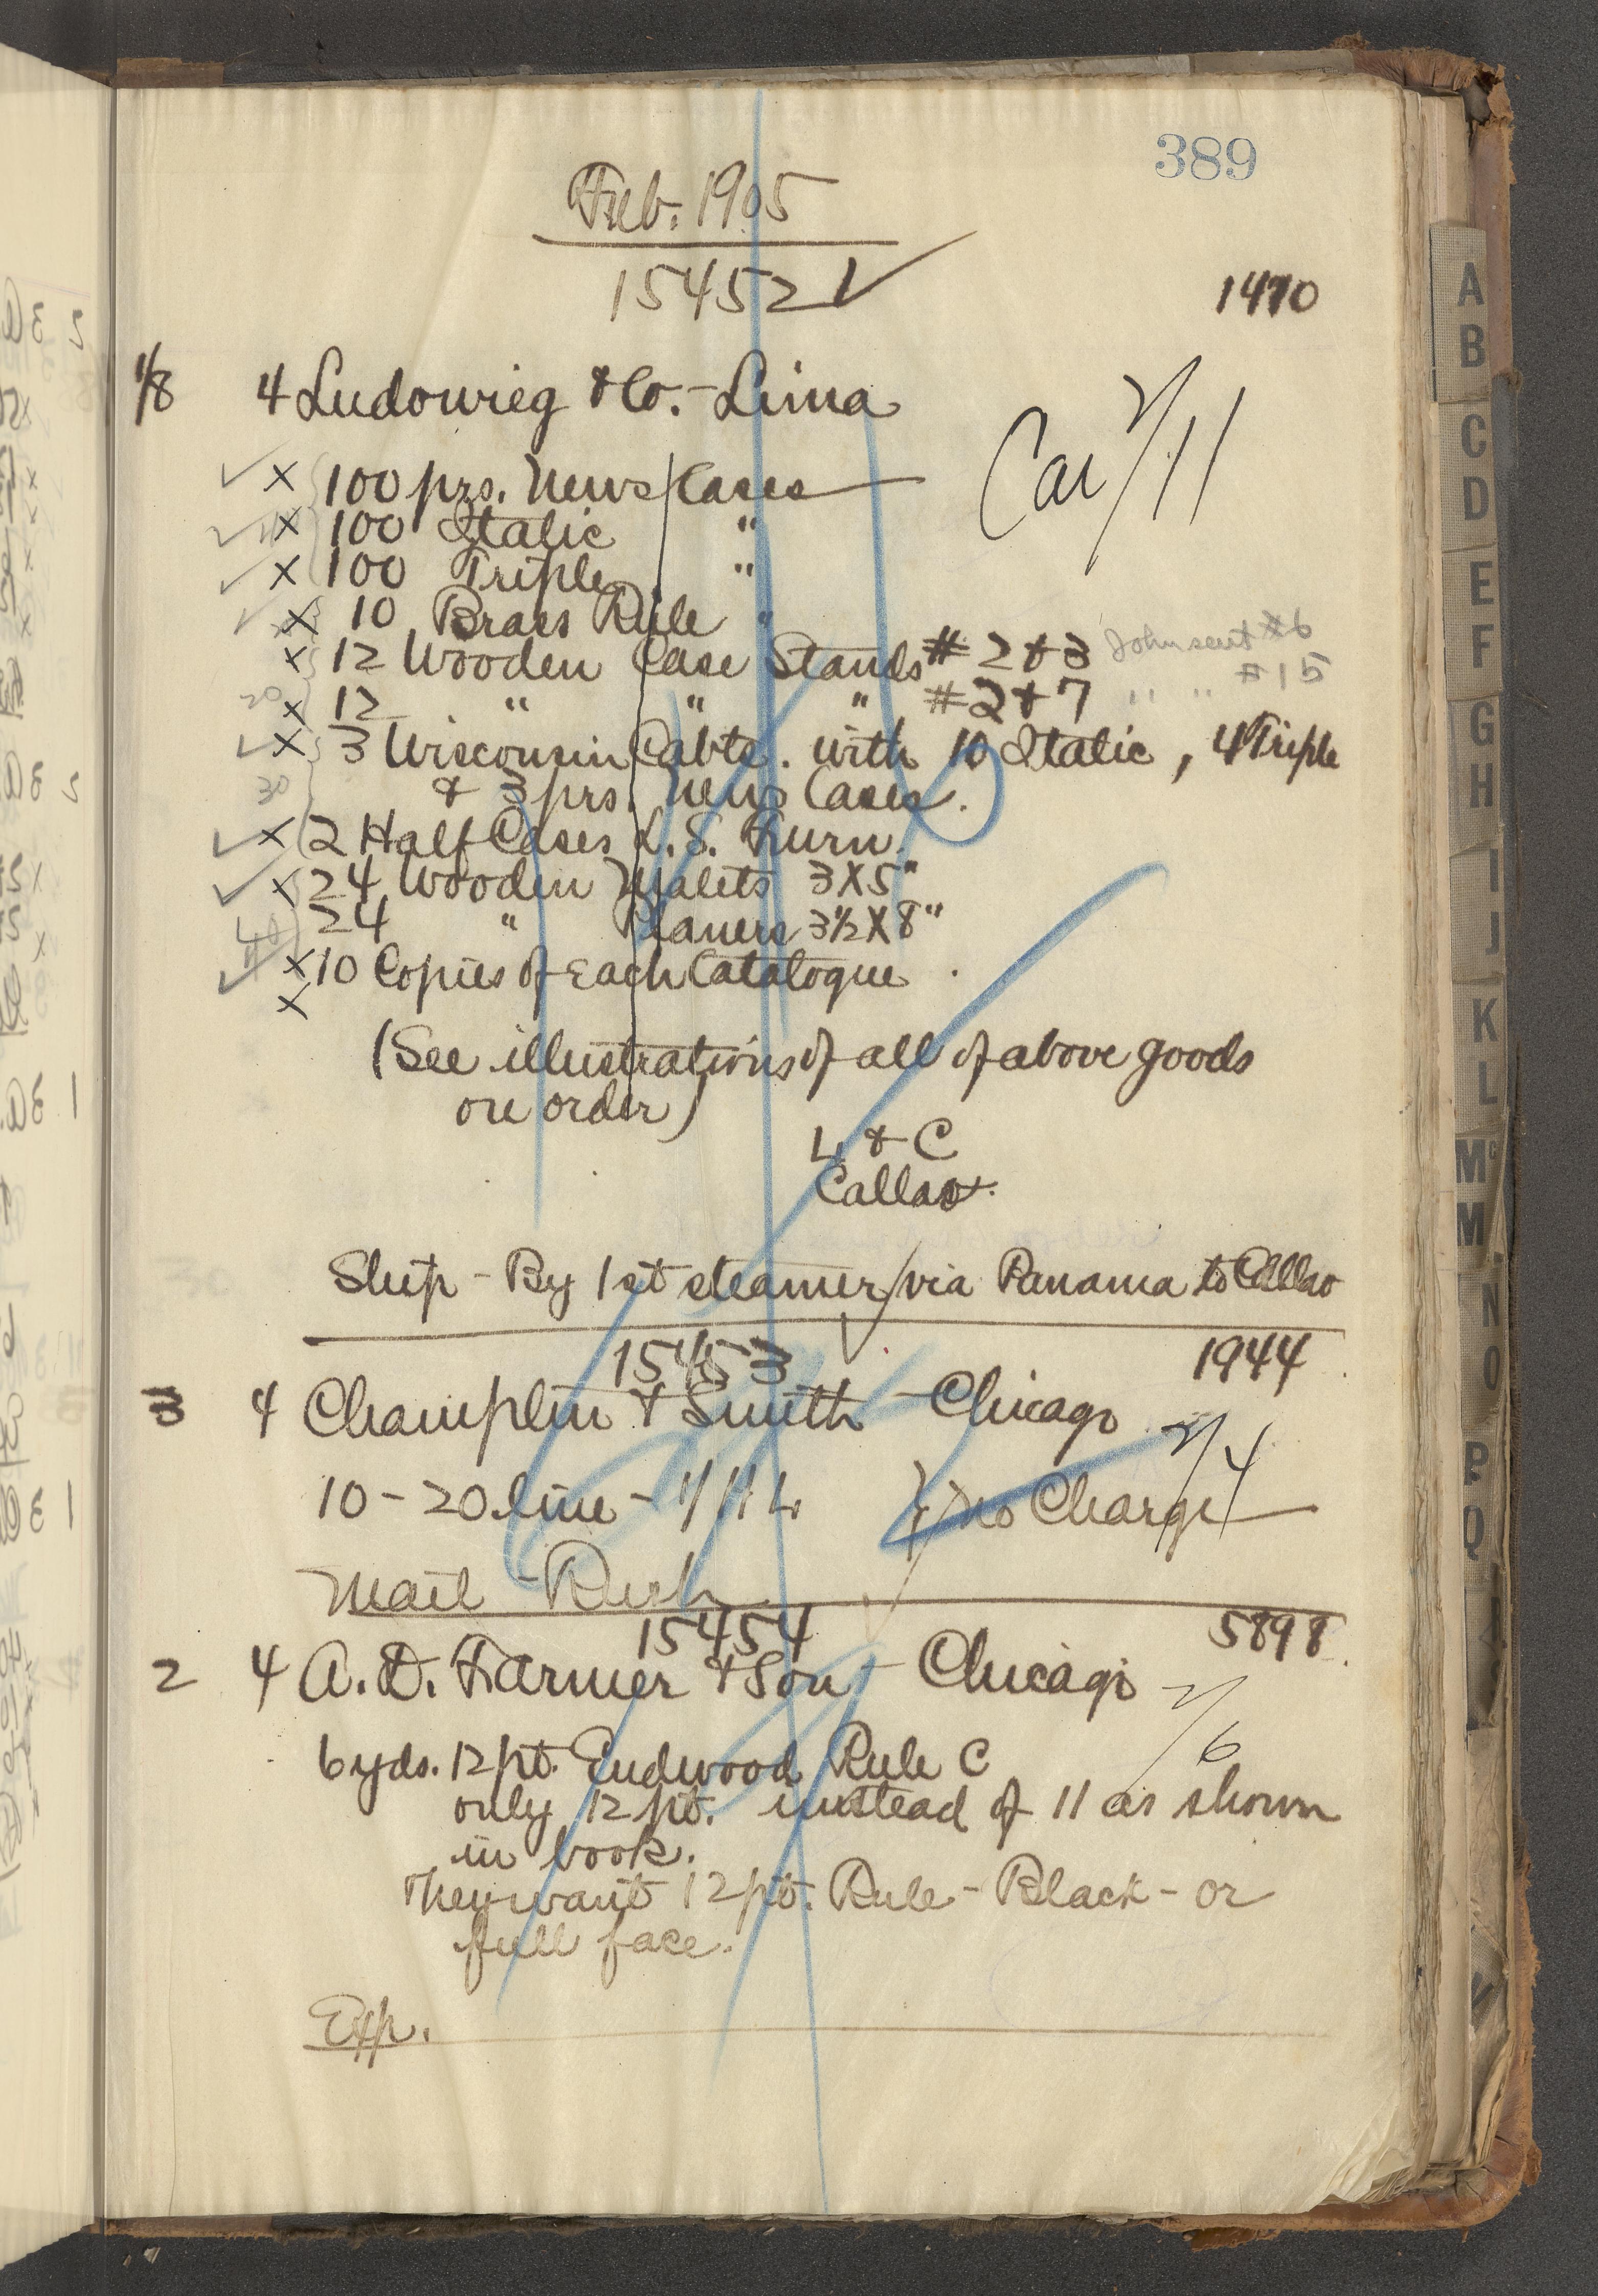 389
Feb. 1905
15452 ✓
1470
1/8 4 Ludowieg & Co. - Lima
Car 2/11
✓ x 100 prs. News Cases
✓ x 100 Italic "
✓ x 100 Triple "
✓ x 10 Brass Rule "
x 12 Wooden Case Stands # 2 & 3 John sent #6
20 x 12 " " " # 2 & 7 " " #15
✓ x 3 Wisconsin Cabts. with 10 Italic, 4 Triple
30 & 3 prs. News Cases.
✓ x 2 Half Cases L.S. Furn.
✓ x 24 Wooden Malets 3X5"
40 24 " Planers 3½X8"
✓ x 10 Copies of Each Catalogue.
x
(See illustrations of all of above goods
on order)
L & C
Callao.
Ship - By 1st steamer via Panama to Callao
15453 ✓
1944
3 4 Champlin & Smith - Chicago 2/4
10 - 20 line - No Charge
Mail - Rush
15454
5898.
2 4 A. D. Farmer & Son - Chicago 2/6
6 yds. 12 pt. Endwood Rule C
only 12 pt. instead of 11 as shown
in book.
They want 12 pt. Rule - Black - or
full face.
Exp.
A
B
C
D
E
F
G
H
I
J
K
L
Mc
M
N
O
P
Q